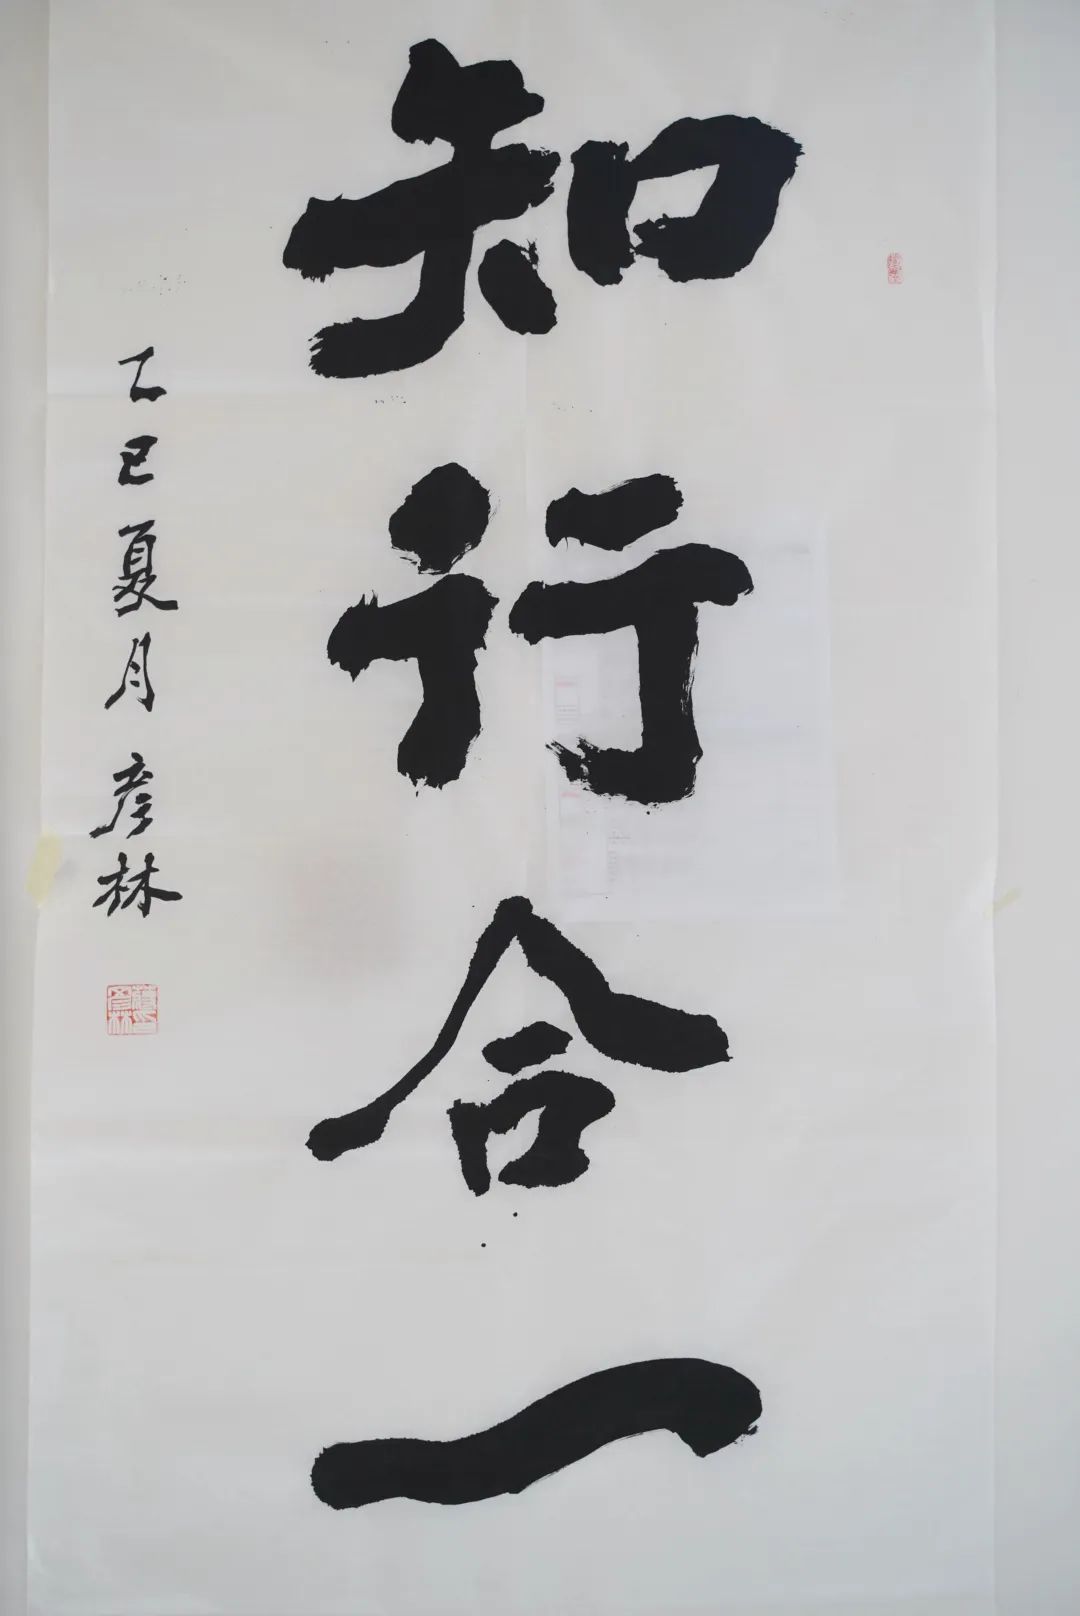 知行合一
乙巳夏月彦林